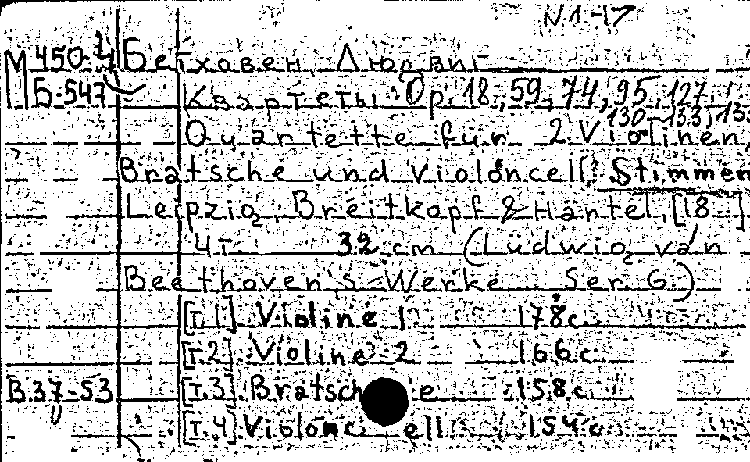 N 1-17
М 450-4 Бетховен, Людвиг
Б-547 Квартеты: Op. 18, 59, 74, 95, 127,
130-133, 135
Quartette für 2 Violinen,
Bratsche und Violoncell: Stimmen
Leipzig, Breitkopf & Härtel, [18-]
4 т. 32 cm (Ludwig van
Beethoven's Werke Ser. 6)
[т.1]. Violine 1 178 с.
[т.2]. Violine 2 166 с.
В.37-53 [т.3]. Bratsche 158 с.
[т.4] Violoncell 154 с